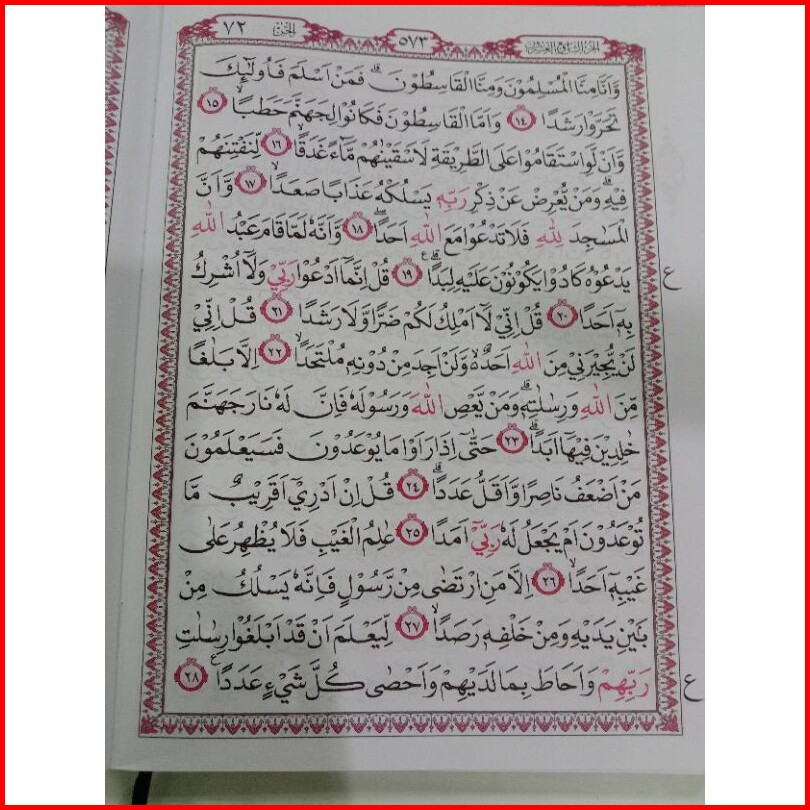 الجزء التاسع والعشرون ٥٧٣ الجن ٧٢
وَّاَنَّا مِنَّا الْمُسْلِمُوْنَ وَمِنَّا الْقَاسِطُوْنَۗ فَمَنْ اَسْلَمَ فَاُولٰۤىِٕكَ
تَحَرَّوْا رَشَدًا ١٤ وَاَمَّا الْقَاسِطُوْنَ فَكَانُوْا لِجَهَنَّمَ حَطَبًاۙ ١٥
وَّاَنْ لَّوِ اسْتَقَامُوْا عَلَى الطَّرِيْقَةِ لَاَسْقَيْنٰهُمْ مَّاۤءً غَدَقًاۙ ١٦ لِّنَفْتِنَهُمْ
فِيْهِۗ وَمَنْ يُّعْرِضْ عَنْ ذِكْرِ رَبِّهٖ يَسْلُكْهُ عَذَابًا صَعَدًاۙ ١٧ وَّاَنَّ
الْمَسٰجِدَ لِلّٰهِ فَلَا تَدْعُوْا مَعَ اللّٰهِ اَحَدًاۖ ١٨ وَّاَنَّهٗ لَمَّا قَامَ عَبْدُ اللّٰهِ
يَدْعُوْهُ كَادُوْا يَكُوْنُوْنَ عَلَيْهِ لِبَدًاۗ ࣖ ١٩ قُلْ اِنَّمَآ اَدْعُوْا رَبِّيْ وَلَآ اُشْرِكُ
بِهٖٓ اَحَدًا ٢٠ قُلْ اِنِّيْ لَآ اَمْلِكُ لَكُمْ ضَرًّا وَّلَا رَشَدًا ٢١ قُلْ اِنِّيْ
لَنْ يُّجِيْرَنِيْ مِنَ اللّٰهِ اَحَدٌ ەۙ وَّلَنْ اَجِدَ مِنْ دُوْنِهٖ مُلْتَحَدًاۙ ٢٢ اِلَّا بَلٰغًا
مِّنَ اللّٰهِ وَرِسٰلٰتِهٖۗ وَمَنْ يَّعْصِ اللّٰهَ وَرَسُوْلَهٗ فَاِنَّ لَهٗ نَارَ جَهَنَّمَ
خٰلِدِيْنَ فِيْهَآ اَبَدًاۗ ٢٣ حَتّٰىٓ اِذَا رَاَوْا مَا يُوْعَدُوْنَ فَسَيَعْلَمُوْنَ
مَنْ اَضْعَفُ نَاصِرًا وَّاَقَلُّ عَدَدًاۗ ٢٤ قُلْ اِنْ اَدْرِيْٓ اَقَرِيْبٌ مَّا
تُوْعَدُوْنَ اَمْ يَجْعَلُ لَهٗ رَبِّيْٓ اَمَدًا ٢٥ عٰلِمُ الْغَيْبِ فَلَا يُظْهِرُ عَلٰى
غَيْبِهٖٓ اَحَدًاۙ ٢٦ اِلَّا مَنِ ارْتَضٰى مِنْ رَّسُوْلٍ فَاِنَّهٗ يَسْلُكُ مِنْ
بَيْنِ يَدَيْهِ وَمِنْ خَلْفِهٖ رَصَدًاۙ ٢٧ لِّيَعْلَمَ اَنْ قَدْ اَبْلَغُوْا رِسٰلٰتِ
رَبِّهِمْ وَاَحَاطَ بِمَا لَدَيْهِمْ وَاَحْصٰى كُلَّ شَيْءٍ عَدَدًا ࣖ ٢٨
ع
ع